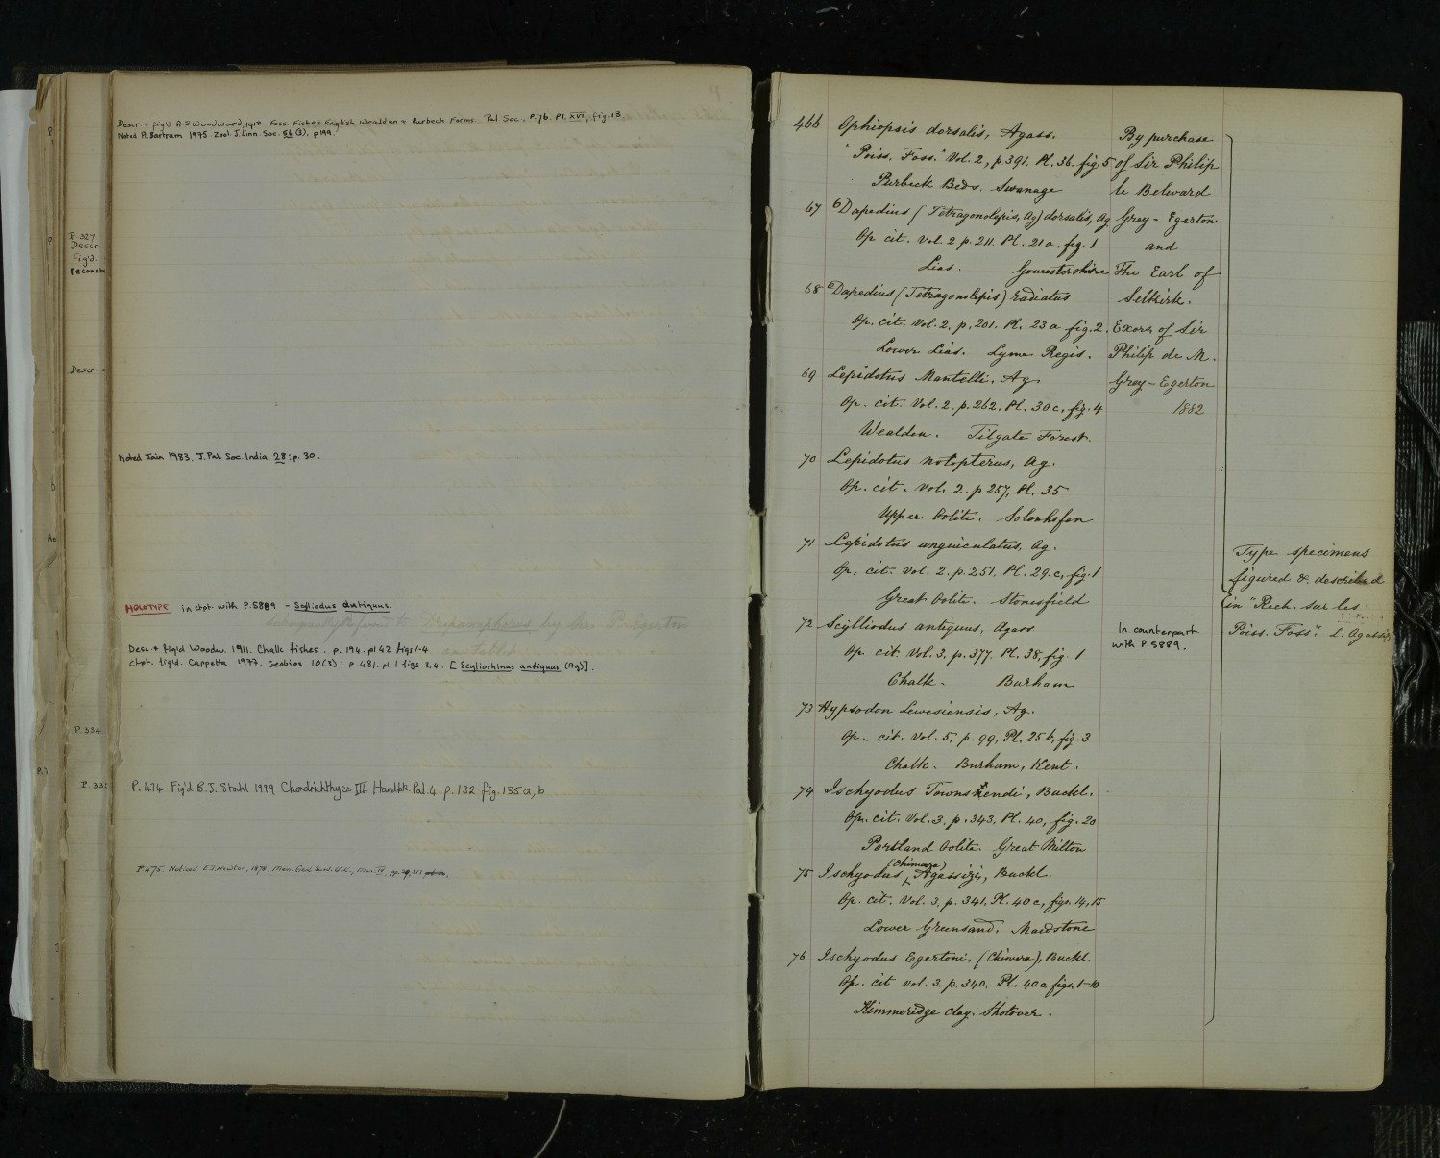 Noted A. Bartram 1975. Zool. J. Linn. Soc. 56 (3), p199.
P. 327
Descr
Fig'd.
Descr
Noted Jain 1983, J. Pal Soc. India 28: p. 30.
HOLOTYPE in ctpt. with P.5889 - Scylliodus antiquus.
Descr & figd Woodw. 1911. Chalk fishes. p. 194. pl 42 figs 1-4
ctpt. figd. Cappetta 1977. Geobios 10(3): p 481. pl 1 figs 3,4. [Scyliorhinus antiquus (Ag)].
P. 334
P. 474 Fig'd B.J. Stahl 1999 Chondrichthyes III Handbk Pal. 4 p. 132 fig. 135 a, b
P 475. Noticed E.T. Newton, 1878 Mem. Geol. Surv. U.K., Mon. IV, pp.
466 Ophiopsis dorsalis, Agass. By purchase
"Poiss. Foss." Vol. 2, p 391. Pl. 36. fig 5 of Sir Philip
Purbeck Beds. Swanage
67 Dapedius (Tetragonolepis, Ag) dorsalis, Ag Grey-Egerton
Op cit. Vol. 2 p. 211. Pl. 21a. fig. 1 and
Lias. The Earl of
68 Dapedius (Tetragonolepis) radiatus
Op. cit. Vol. 2, p. 201. Pl. 23a fig. 2. Exors of Sir
Lower Lias. Lyme Regis. Philip de M.
69 Lepidotus Mantelli, Ag. Grey-Egerton
Op. cit. Vol. 2. p. 262. Pl. 30c, fig. 4 1882
Wealden. Tilgate Forest.
70 Lepidotus notopterus, Ag.
Op. cit. Vol. 2. p 257, Pl. 35
Upper Oolite. Solenhofen
71 Lepidotus unguiculatus, Ag.
Op. cit. Vol. 2. p. 251, Pl. 29.c, fig. 1
Great Oolite. Stonesfield
Type specimens
figured & described
in "Rech. sur les
Poiss. Foss". L. Agassiz
72 Scylliodus antiquus, Agass In counterpart
with P5889.
Op. cit Vol. 3, p. 377. Pl. 38, fig. 1
Chalk. Burham
73 Hypsodon Lewesiensis, Ag.
Op. cit. Vol. 5, p 99, Pl. 25b, fig 3
Chalk. Burham, Kent.
74 Ischyodus Townsendi, Buckl.
Op. cit. Vol. 3, p. 343, Pl. 40, fig. 20
Portland Oolite. Great Milton
(Chimaera)
75 Ischyodus Agassizi, Buckl
Op. cit. Vol. 3, p. 341. Pl. 40c, figs. 14, 15
Lower Greensand. Maidstone
76 Ischyodus Egertoni, (Chimera), Buckl.
Op. cit vol. 3. p. 340. Pl. 40a figs. 1-10
Kimmeridge clay. Shotover.